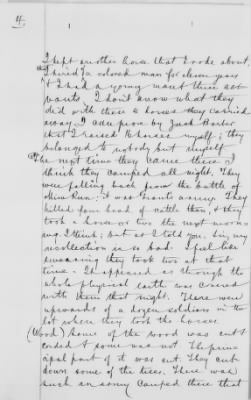 4.
I kept another horse that I rode about,
I hired a colored man for eleven years
& I had a young man & these ser-
vants. I don't know what they
did with these 2 horses they carried
away. I can prove by Jack Barber
that I raised horses myself; they
belonged to nobody but myself
The next time they came there I
think they camped all night. They
were falling back from the battle of
Mine Run; it was Grant's army. They
killed four head of cattle then, & they
took a horse or two the next morn-
ing, I think; but as I told you, Sir, my
recollection is so bad. I feel like
swearing they took two at that
time. It appeared as though the
whole physical earth was covered
with them that night. There were
upwards of a dozen soldiers in the
lot where they took the horses.
(Wood) Some of the wood was cut &
corded & some was not. The prin-
cipal part of it was cut. They cut
down some of the trees. There was
such an army camped there that